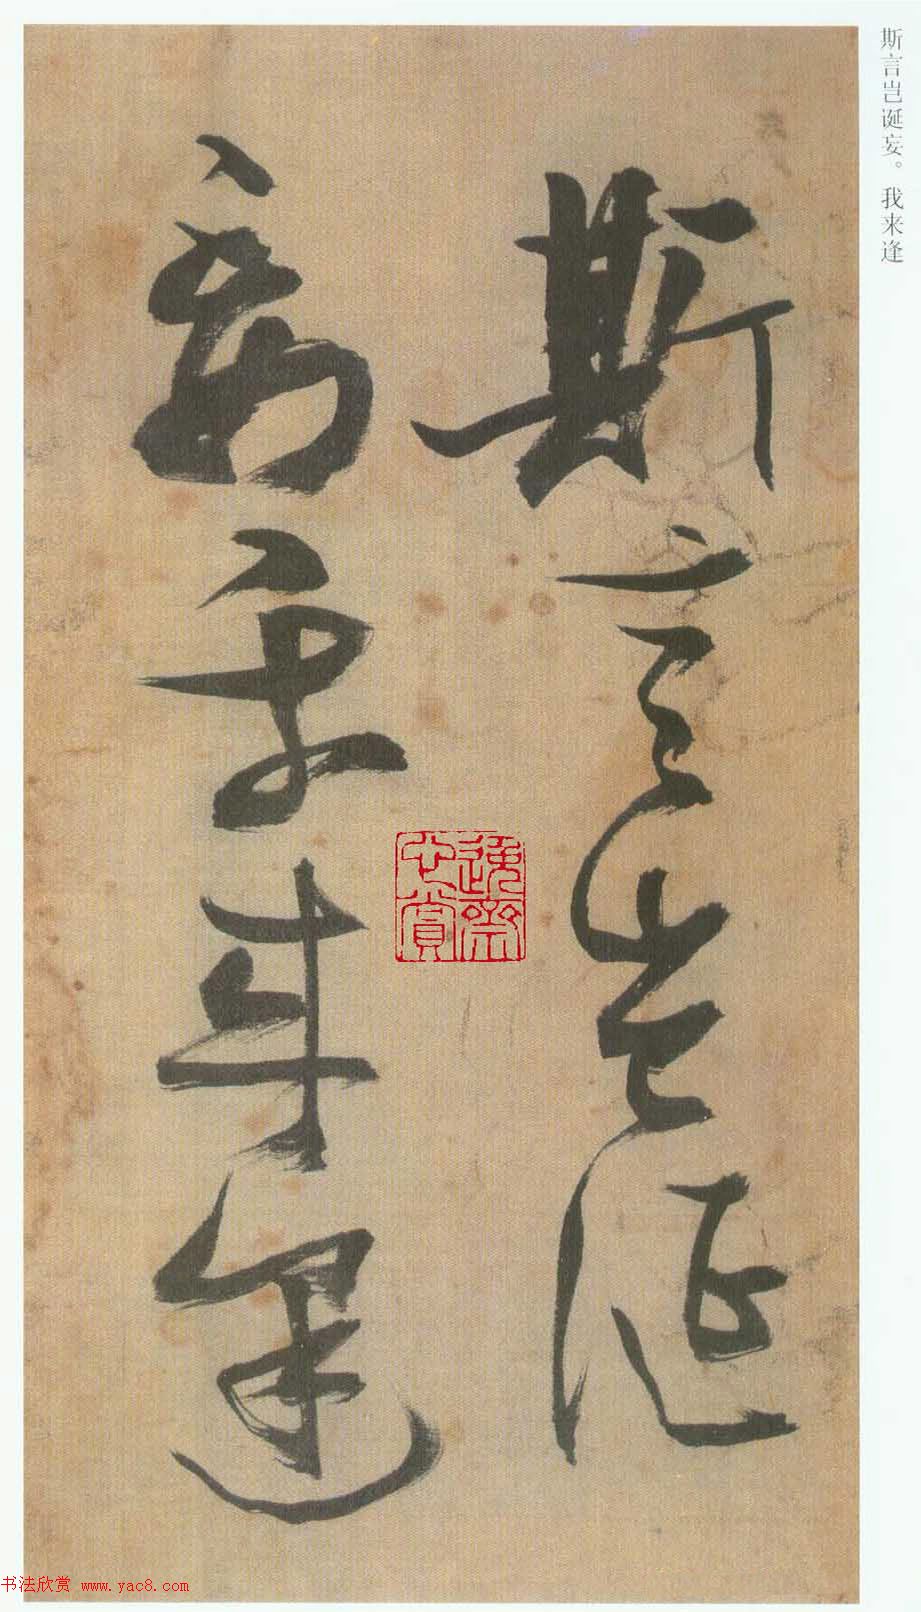 斯言岂诞妄。我来逢
斯言豈誕
妄我来逢
书法欣赏 www.yac8.com